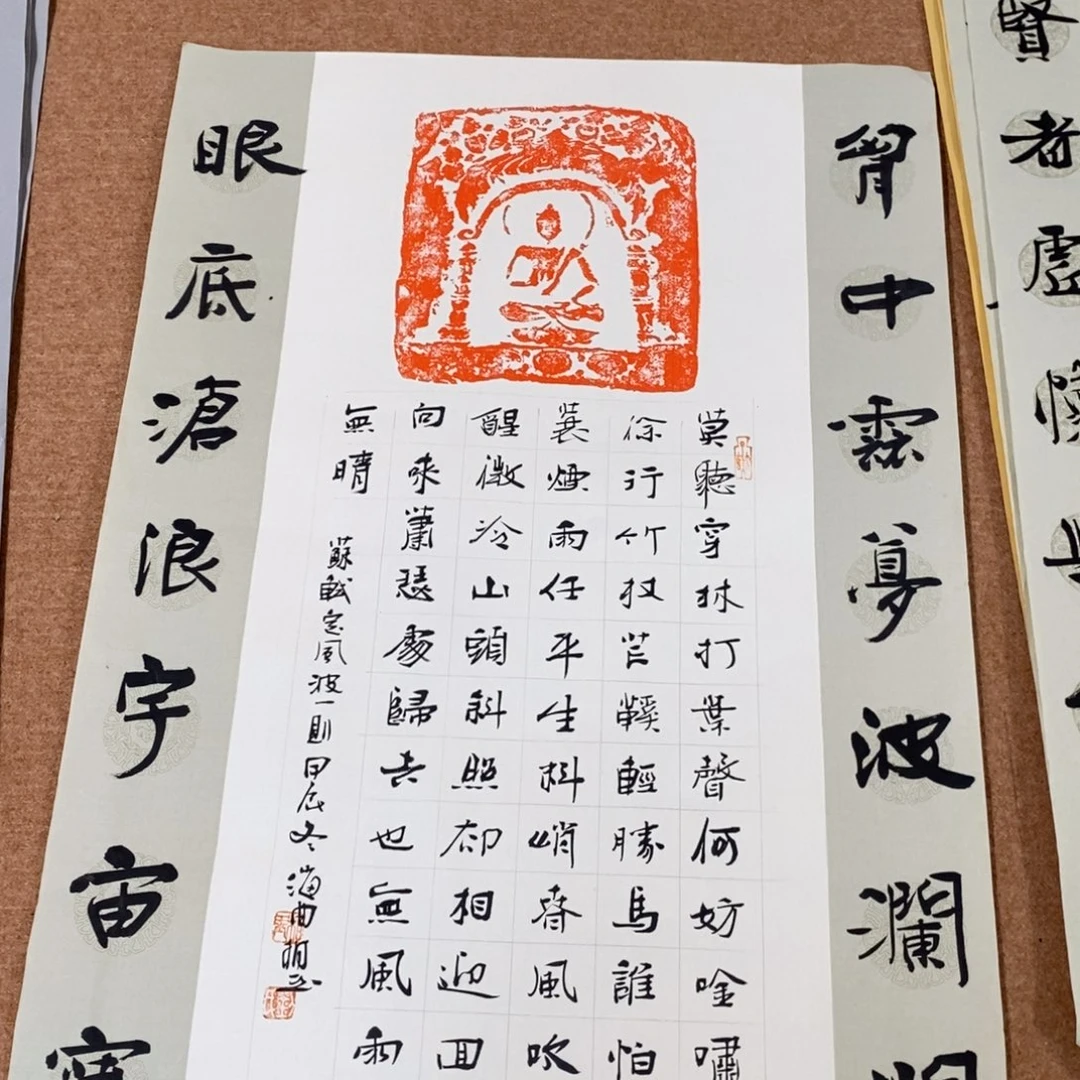 賢者虛懷
胷中雲夢波瀾
莫聽穿林打葉聲何妨唫嘯
徐行竹杖芒鞵輕勝馬誰怕
蓑煙雨任平生料峭春風吹
醒微冷山頭斜照却相迎囬
向來蕭瑟處歸去也無風雨
無晴
蘇軾定風波一則甲辰冬海曲
眼底滄浪宇宙寬